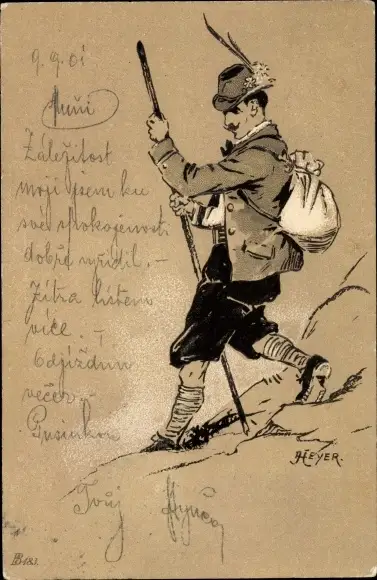 9. 9. 01
Záležitost
moji jsem ku
své spokojenosti
dobře vyřídil. —
Zítra listem
více. —
Odjíždím
večer. —
Pusinkou
Tvůj Hynča
HEYER.
B 181.